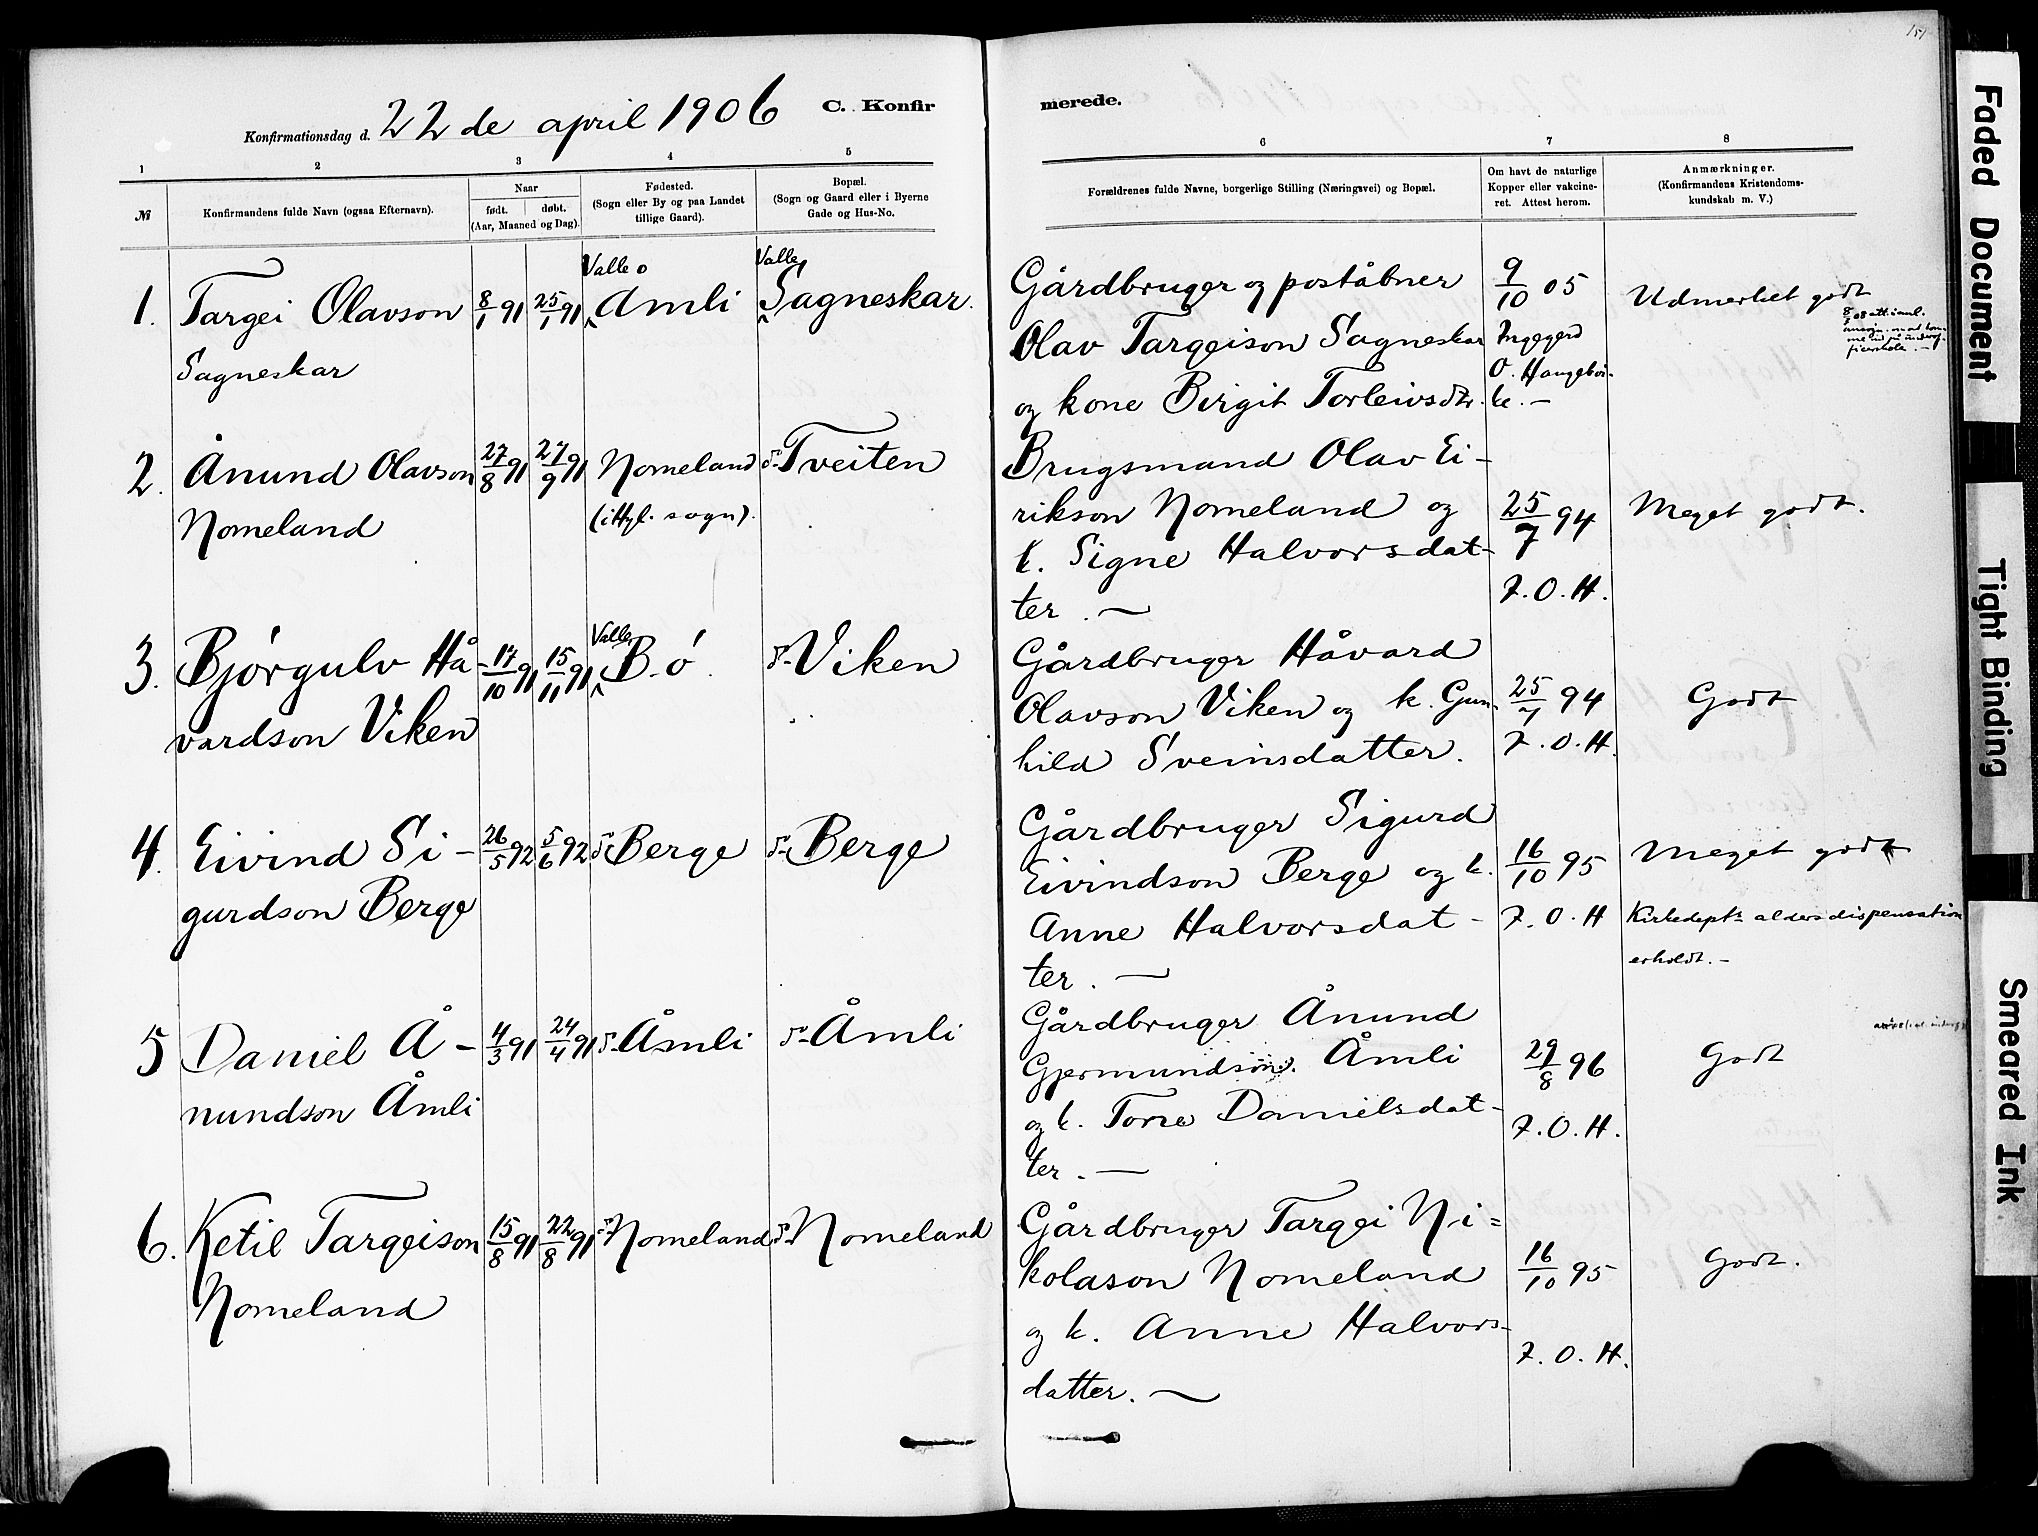 151
22 de april 1906
C. Konfir
merede.
Konfirmationsdag d.
1 2 3 4 5 6 7 8
№
Konfirmandens fulde Navn (ogsaa Efternavn).
Naar
født. døbt.
(Aar, Maaned og Dag).
Fødested.
(Sogn eller By og paa Landet
tillige Gaard).
Bopæl.
(Sogn og Gaard eller i Byerne
Gade og Hus-No.
Forældrenes fulde Navne, borgerlige Stilling (Næringsvei) og Bopæl.
Om havt de naturlige
Kopper eller vakcine-
ret. Attest herom.
Anmærkninger.
(Konfirmandens Kristendoms-
kundskab m. V.)
1. Targei Olavson
Sagneskar
8/1 91 25/1 91
Valle o
Åmli
Valle
Sagneskar.
Gårdbruger og poståbner
Olav Targeison Sagneskar
og kone Birgit Torleivsdtr.
9/10 05
Ingegerd
O. Haugebir-
ke. —
Udmerket godt
2. Ånund Olavson
Nomeland
27/8 91 27/9 91
Nomeland
(ittyl. sogn).
do Tveiten
Brugsmand Olav Ei-
rikson Nomeland og
k. Signe Halvorsdat-
ter. —
25/7 94
I. O. H.
Meget godt.
3. Bjørgulv Hå-
vardson Viken
17/10 91 15/11 91
Valle
Bø.
do Viken
Gårdbruger Håvard
Olavson Viken og k. Gun-
hild Sveinsdatter.
25/7 94
I. O. H.
Godt
4. Eivind Si-
gurdson Berge
26/5 92 5/6 92
do Berge
do Berge
Gårdbruger Sigurd
Eivindson Berge og k.
Anne Halvorsdat-
ter. —
16/10 95
I. O. H
Meget godt
Kirkedepts aldersdispensation
erholdt. —
5 Daniel Å-
nundson Åmli
4/3 91 24/4 91
do Åmli
do Åmli
Gårdbruger Ånund
Gjermundson Åmli
og k. Torre Danielsdat-
ter. —
29/8 96
I. O. H.
Godt
6. Ketil Targeison
Nomeland
15/8 91 22/8 91
do Nomeland
do Nomeland
Gårdbruger Targei Ni=
kolason Nomeland
og k. Anne Halvors-
datter. —
16/10 95
I. O. H.
Godt.
Faded Document
Tight Binding
Smeared Ink